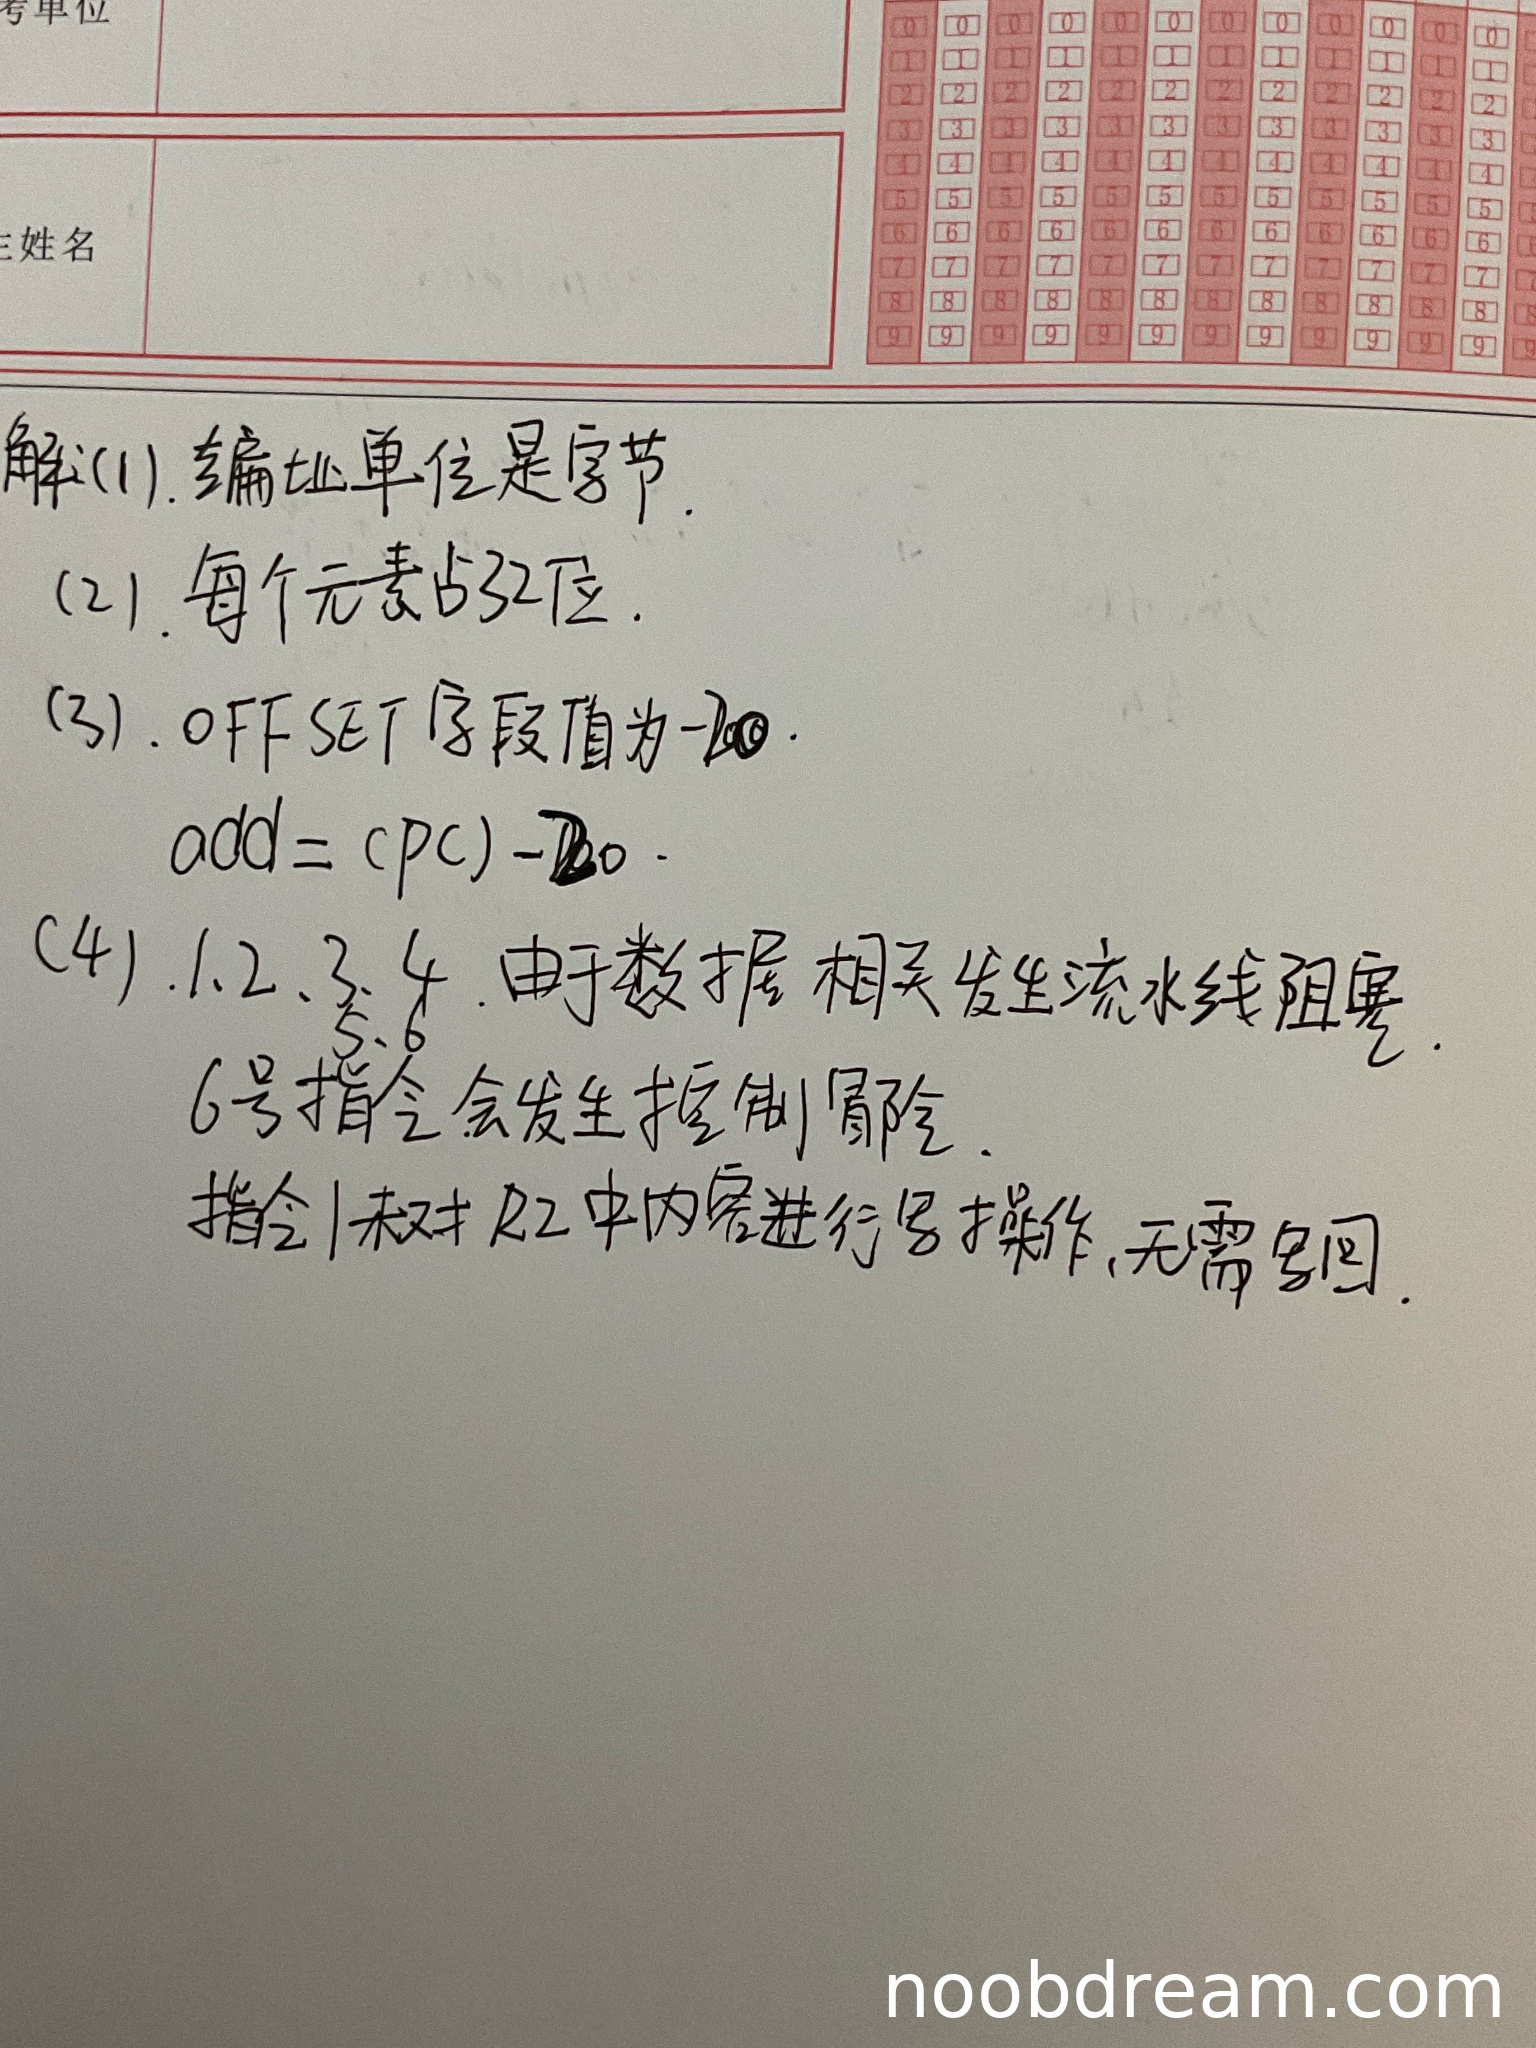 考单位
姓名
0 0 0 0 0 0 0 0 0 0 0 0
1 1 1 1 1 1 1 1 1 1 1 1
2 2 2 2 2 2 2 2 2 2 2 2
3 3 3 3 3 3 3 3 3 3 3 3
4 4 4 4 4 4 4 4 4 4 4 4
5 5 5 5 5 5 5 5 5 5 5 5
6 6 6 6 6 6 6 6 6 6 6 6
7 7 7 7 7 7 7 7 7 7 7 7
8 8 8 8 8 8 8 8 8 8 8 8
9 9 9 9 9 9 9 9 9 9 9 9
解:(1).编址单位是字节.
(2).每个元素占32位.
(3).OFFSET字段值为
add=(PC)-
(4).1.2、3、4.由于数据相关发生流水线阻塞.
5、6
6号指令会发生控制冒险.
指令1未对R2中内容进行写操作,无需写回.
noobdream.com